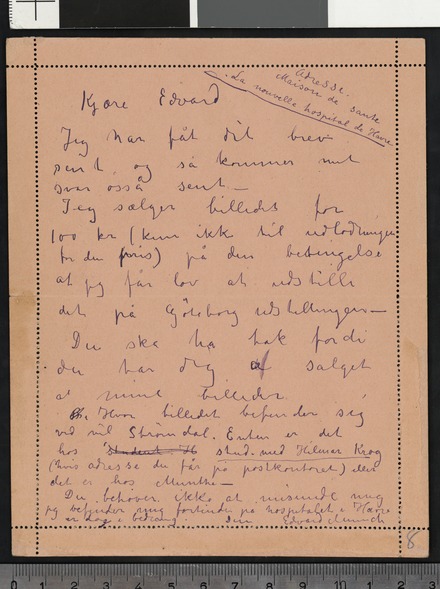 Adresse.
Maison de sante
La nouvelle hospital de Havre
Kjære Edvard
Jeg har fåt dit brev
sent, og så kommer mit
svar også sent –
Jeg sælger billedet for
100 kr (kun ikke til udlodninger
for den pris) på den betingelse
at jeg får lov at udstille
det på Göteborg udstillingen –
Du ska ha tak fordi
du har dig af salget
at mine billeder
Hvor billedet befinder sig
ved vil Strømdal. Enten er det
hos stud. med Hilmar Krog
(hvis adresse du får på postkontoret) eller
det er hos Munthe –
Du behøver ikke at misunde mig
jeg befinder mig fortiden på hospitalet i Havre
er dog i bedring. Din Edvard Munch
8
0 1 2 3 4 5 6 7 8 9 10 11 12 13